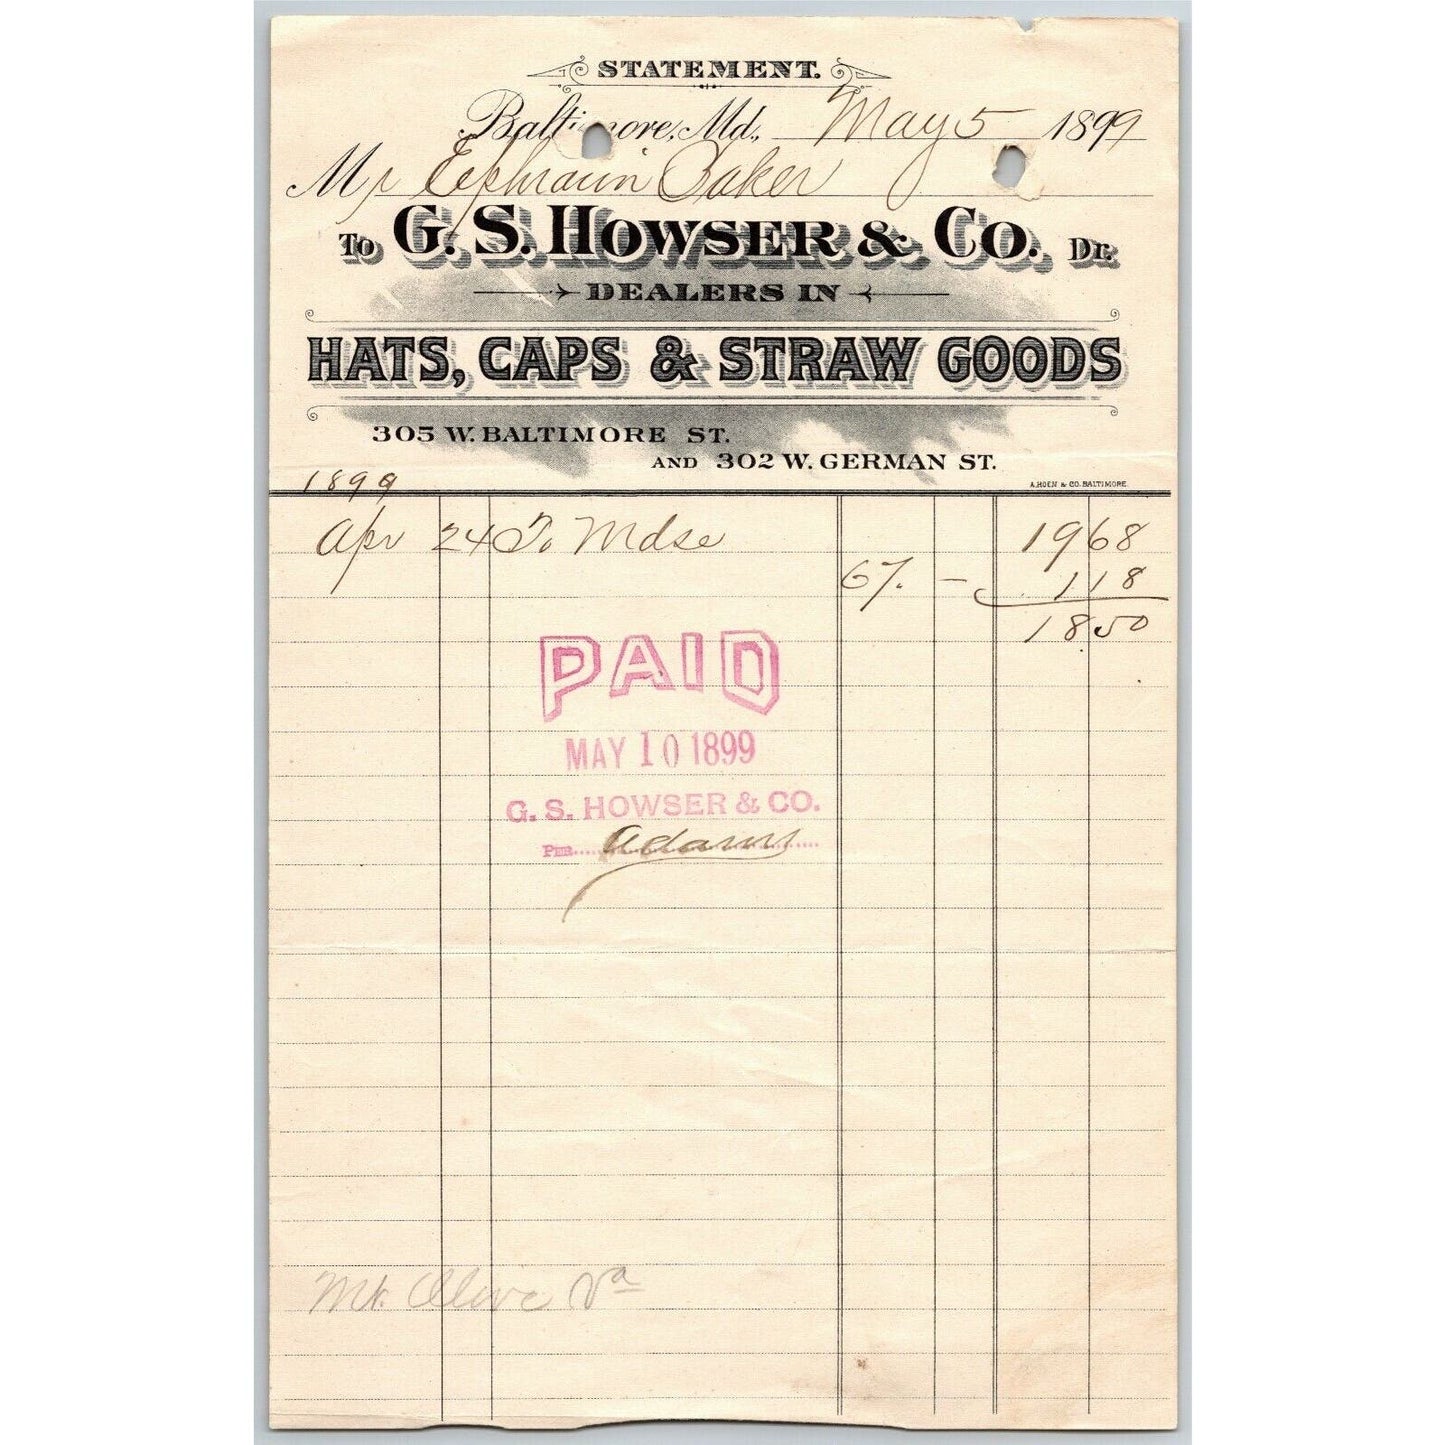 STATEMENT.
Baltimore, Md., May 5 1899
Mr Ephraim Baker
To G. S. HOWSER & CO. Dr.
DEALERS IN
HATS, CAPS & STRAW GOODS
305 W. BALTIMORE ST.
AND 302 W. GERMAN ST.
1899
A. HOEN & CO. BALTIMORE.
Apr 24 To Mdse 19 68
6%. - 1 18
18 50
PAID
MAY 10 1899
G. S. HOWSER & CO.
PER Adams
Mt. Olive Va